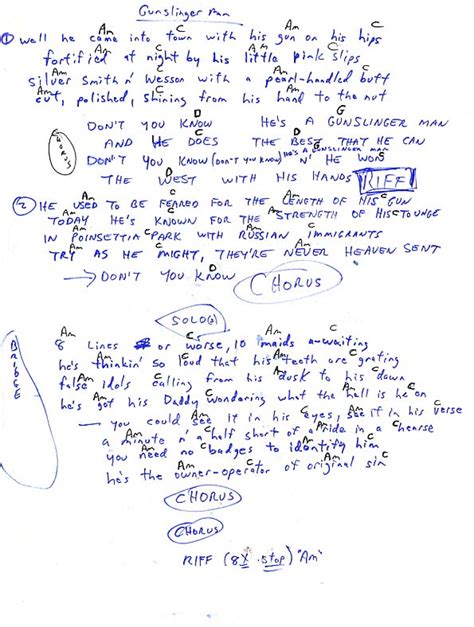 Gunslinger Man
Am C Am C
① Well he came into town with his gun on his hips
Am C Am C
fortified at night by his little pink slips
Am C Am C
silver Smith n' Wesson with a pearl-handled butt
Am C Am C
cut, polished, shining from his hand to the nut
D G
CHORUS
DON'T YOU KNOW HE'S A GUNSLINGER MAN
Am C D
AND HE DOES THE BEST THAT HE CAN
DON'T YOU KNOW (DON'T YOU KNOW) (HE'S A GUNSLINGER MAN) N' HE WON
THE WEST WITH HIS HANDS RIFF
② HE USED TO BE FEARED FOR THE LENGTH OF HIS GUN
TODAY HE'S KNOWN FOR THE STRENGTH OF HIS TOUNGE
IN POINSETTIA PARK WITH RUSSIAN IMMIGRANTS
TRY AS HE MIGHT, THEY'RE NEVER HEAVEN SENT
→ DON'T YOU KNOW CHORUS
SOLO
BRIDGE
Am C Am C
8 Lines or worse, 10 maids a-waiting
he's thinkin' so loud that his teeth are grating
false idols calling from his dusk to his dawn
he's got his Daddy wondering what the hell is he on
→ you could see it in his eyes, see it in his verse
a minute n' a half short of a ride in a hearse
you need no badges to identify him
he's the owner-operator of original sin
CHORUS
CHORUS
RIFF (8X stop) "Am"